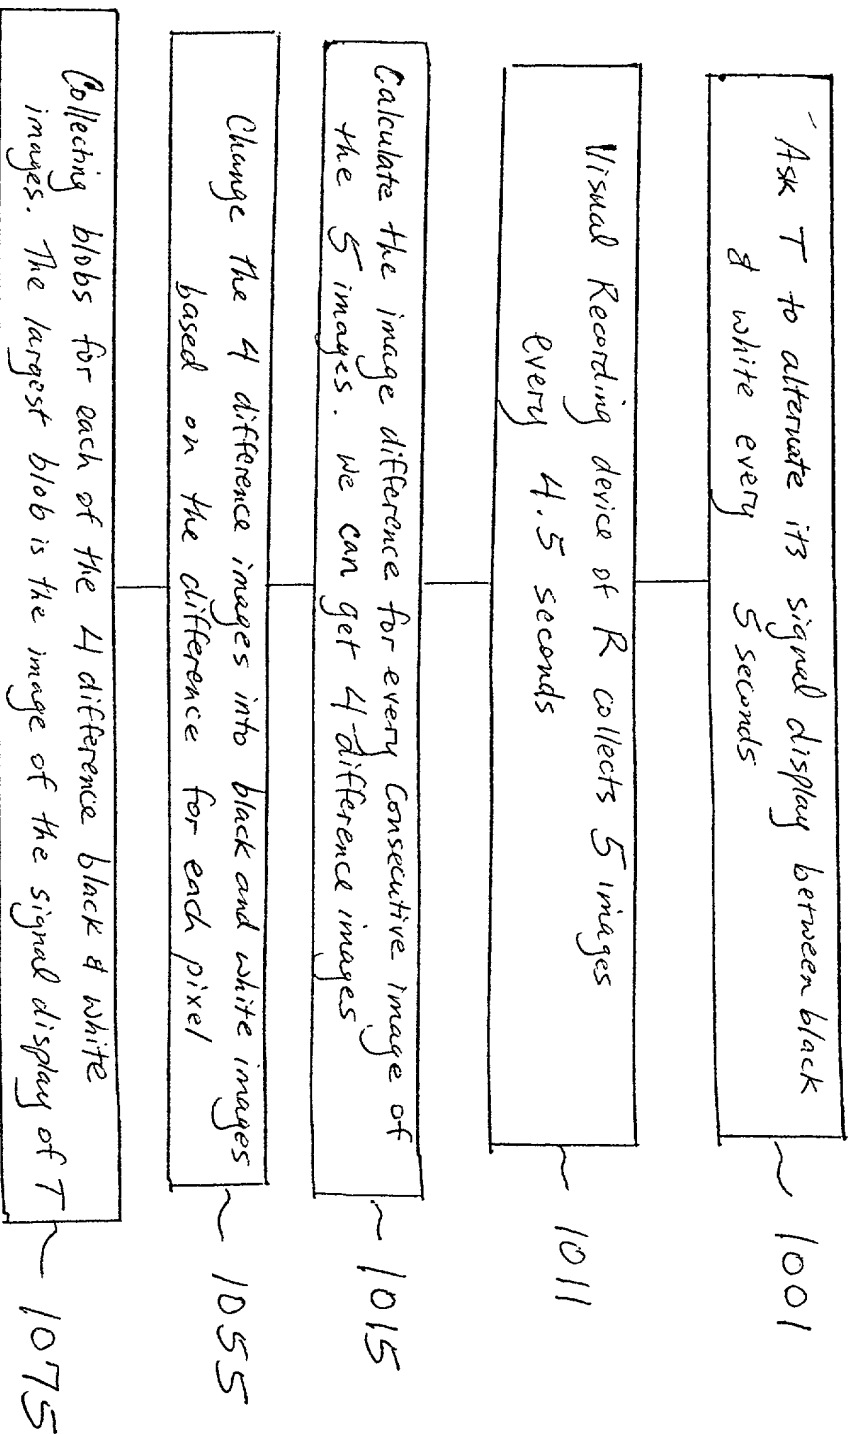 Ask T to alternate its signal display between black
& white every 5 seconds
~ 1001
Visual Recording device of R collects 5 images
every 4.5 seconds
~ 1011
Calculate the image difference for every consecutive image of
the 5 images. We can get 4 difference images
~ 1015
Change the 4 difference images into black and white images
based on the difference for each pixel
~ 1055
Collecting blobs for each of the 4 difference black & white
images. The largest blob is the image of the signal display of T
~ 1075